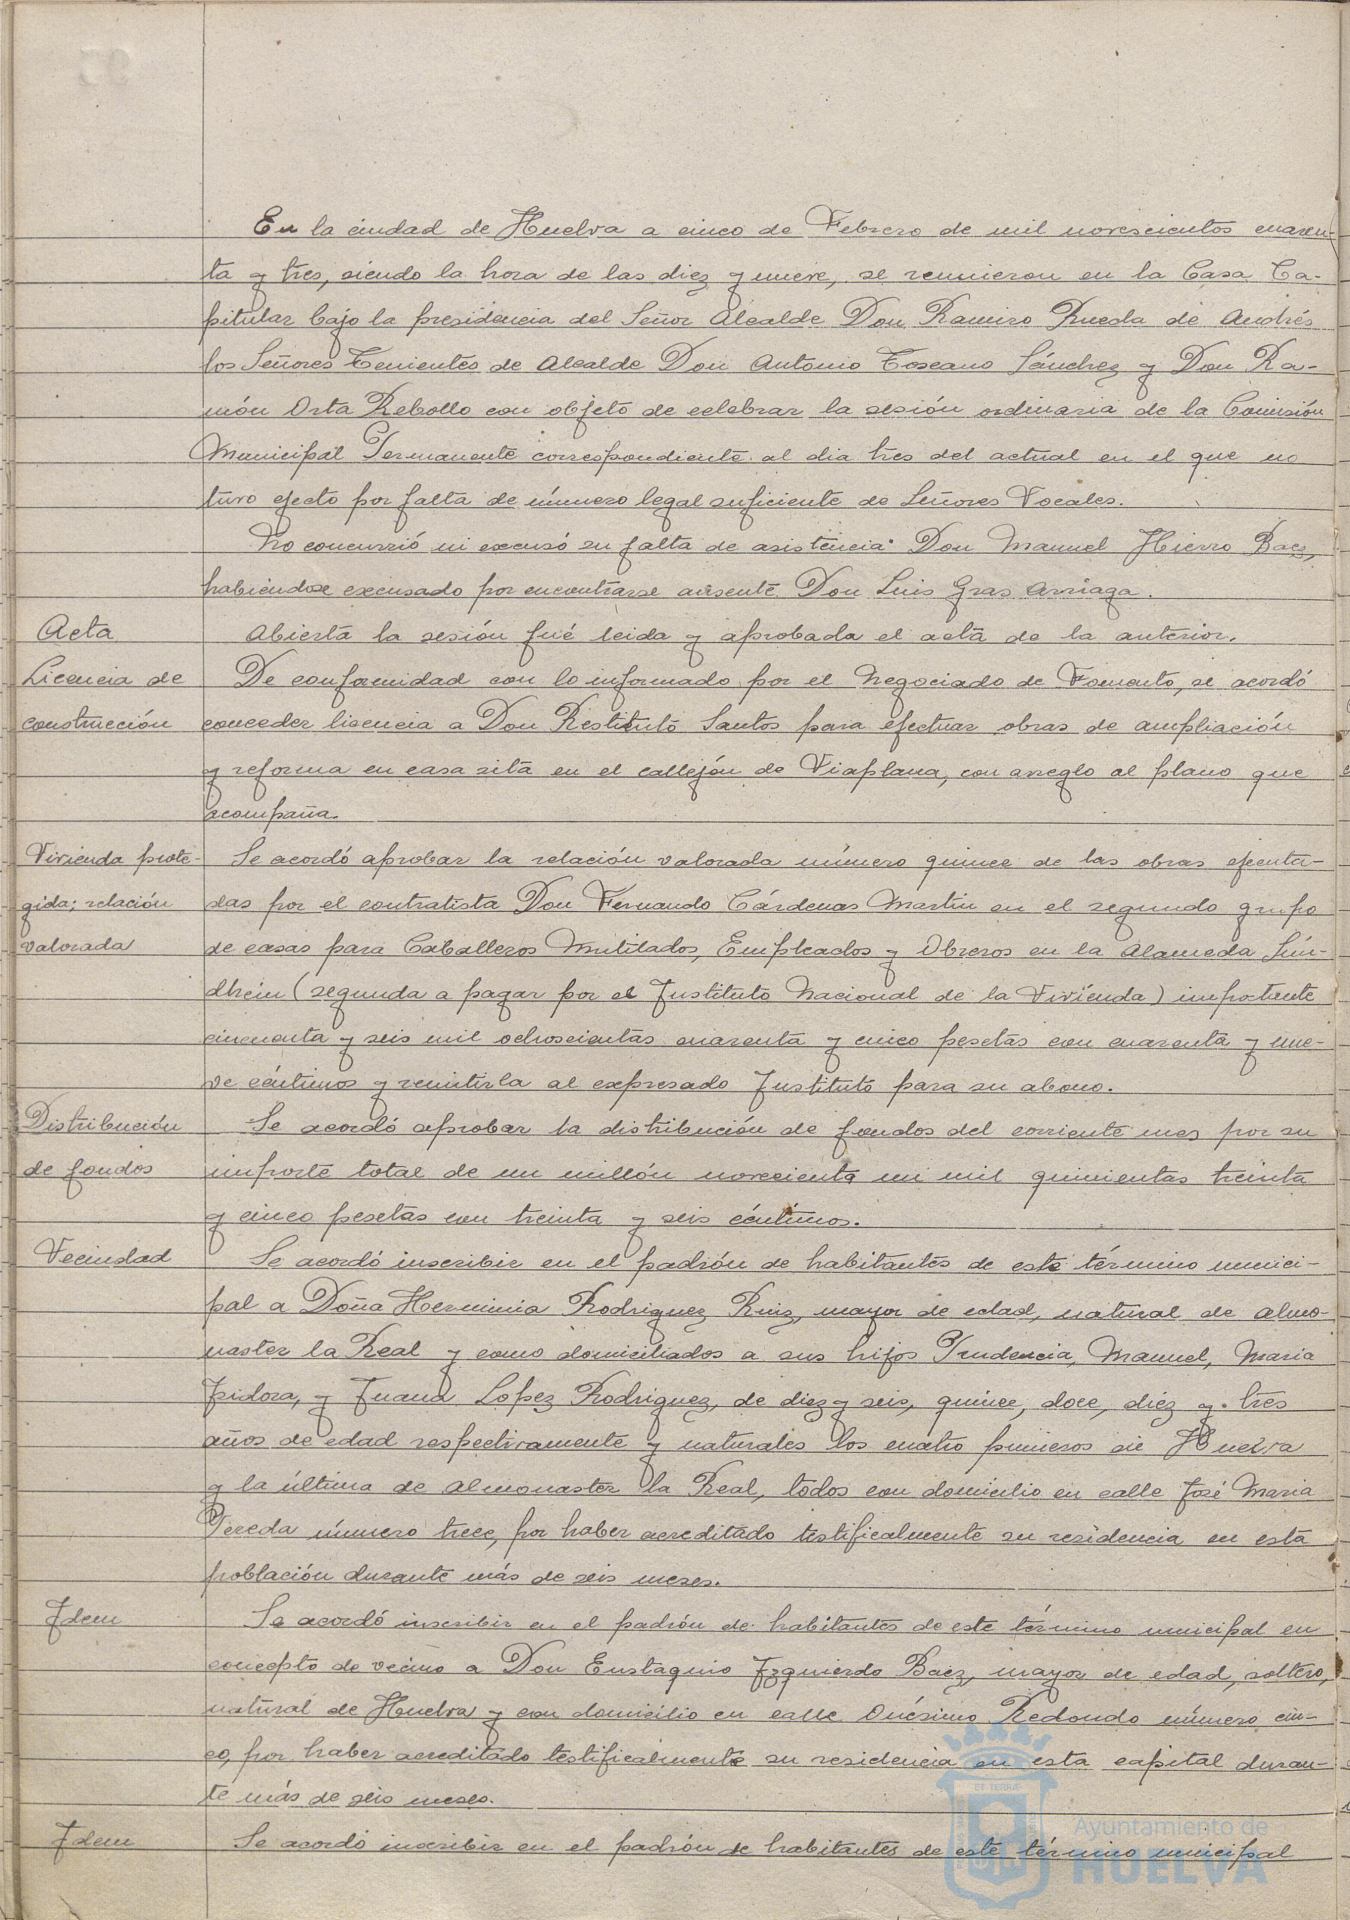 En la ciudad de Huelva a cinco de Febrero de mil novescientos cuaren-
ta y tres, siendo la hora de las diez y nueve, se reunieron en la Casa Ca-
pitular bajo la presidencia del Señor Alcalde Don Ramiro Rueda de Andrés
los Señores Tenientes de Alcalde Don Antonio Toscano Sánchez y Don Ra-
món Orta Rebollo con objeto de celebrar la sesión ordinaria de la Comisión
Municipal Permanente correspondiente al dia tres del actual en el que no
tuvo efecto por falta de número legal suficiente de Señores Vocales.
No concurrió ni excusó su falta de asistencia Don Manuel Hierro Baez,
habiendose excusado por encontrarse ausente Don Luis Gras Arriaga.
Acta
Abierta la sesión fué leida y aprobada el acta de la anterior.
Licencia de
construcción
De conformidad con lo informado por el Negociado de Fomento, se acordó
conceder licencia a Don Restituto Santos para efectuar obras de ampliación
y reforma en casa sita en el callejón de Viaplana, con arreglo al plano que
acompaña.
Vivienda prote-
gida; relación
valorada
Se acordó aprobar la relación valorada número quince de las obras ejecuta-
das por el contratista Don Fernando Cárdenas Martin en el segundo grupo
de casas para Caballeros Mutilados, Empleados y Obreros en la Alameda Sún-
dhein (segunda a pagar por el Instituto Nacional de la Vivienda) importante
cincuenta y seis mil ochoscientas cuarenta y cinco pesetas con cuarenta y nue-
ve céntimos y remitirla al expresado Instituto para su abono.
Distribución
de fondos
Se acordó aprobar la distribución de fondos del corriente mes por su
importe total de un millón novecienta un mil quinientas treinta
y cinco pesetas con treinta y seis céntimos.
Vecindad
Se acordó inscribir en el padrón de habitantes de este término munici-
pal a Doña Herminia Rodriguez Ruiz, mayor de edad, natural de Almo-
naster la Real y como domiciliados a sus hijos Prudencia, Manuel, Maria
Isidora, y Juana Lopez Rodriguez, de diez y seis, quince, doce, diéz y tres
años de edad respectivamente y naturales los cuatro primeros de Huelva
y la última de Almonaster la Real, todos con domicilio en calle José Maria
Pereda número trece, por haber acreditado testificalmente su residencia en esta
población durante más de seis meses.
Idem
Se acordó inscribir en el padrón de habitantes de este término municipal en
concepto de vecino a Don Eustaquio Izquierdo Baéz, mayor de edad, soltero,
natural de Huelva y con domicilio en calle Onésimo Redondo número cin-
co, por haber acreditado testificalmente su residencia en esta capital duran-
te más de seis meses.
Idem
Se acordó inscribir en el padrón de habitantes de este término municipal
Ayuntamiento de
HUELVA